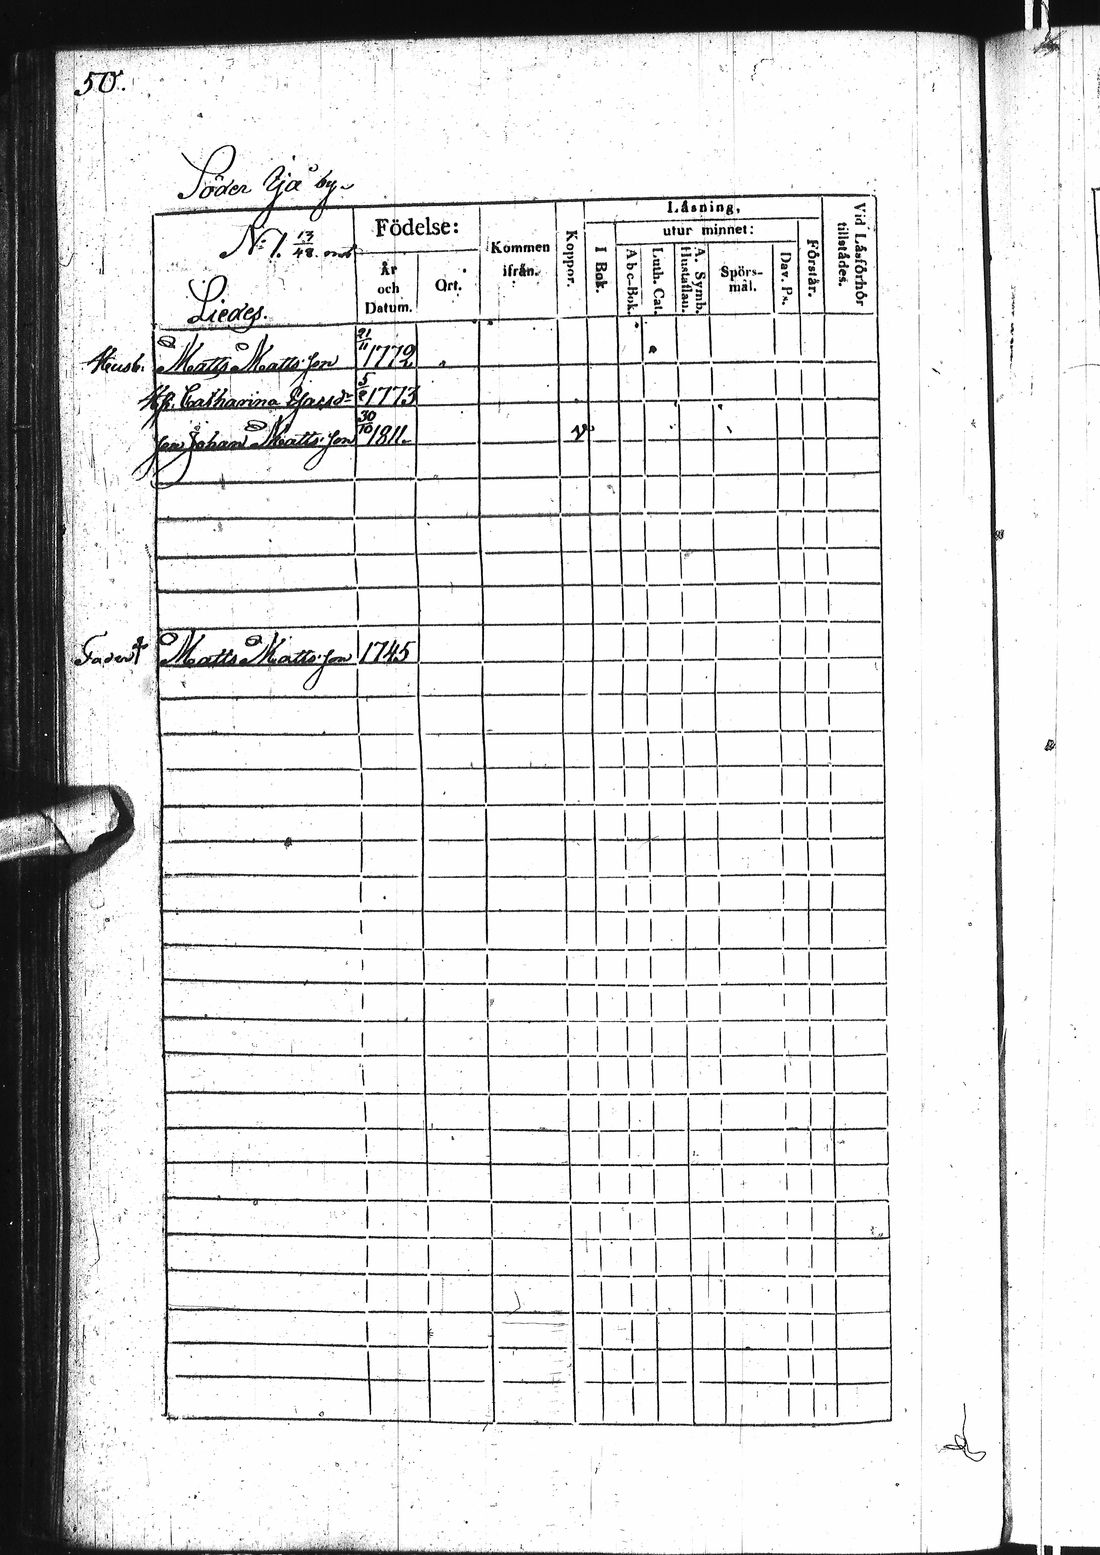 50.
Söder Yjä by.
N:1. 13/48 mt
Liedes.
Födelse:
År och Datum.
Ort.
Kommen ifrån.
Koppor.
Låsning,
I Bok.
utur minnet:
Abc-Bok.
Luth. Cat.
A. Symb. Hustaflan.
Spörs-mål.
Dav. Ps.
Förstår.
Vid Låsförhör tillstådes.
Husb. Matts Matts:son 21/11 1772
H:fr. Catharina 5/2 1773
son Johan Matts:son 30/10 1811. v
Fader † Matts Matts:son 1745